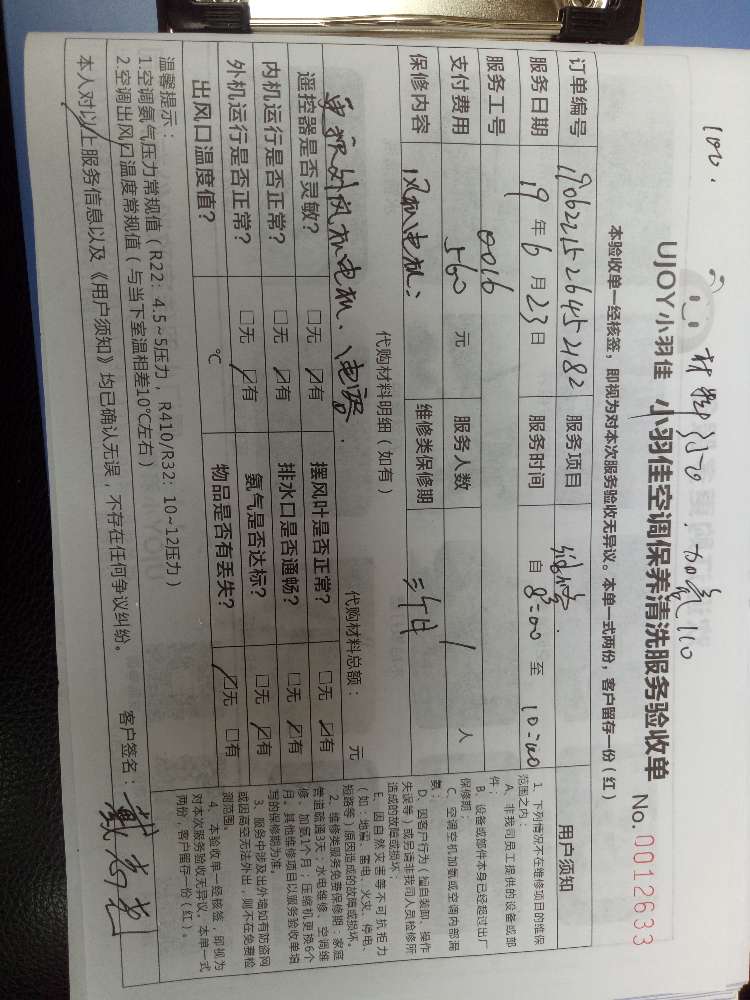 100.
材料350. 加氟110
UJOY小羽佳 小羽佳空调保养清洗服务验收单 No. 0012633
本验收单一经核签，即视为对本次服务验收无异议。本单一式两份，客户留存一份（红）
订单编号 1906221526452182 服务项目 维修.
服务日期 19 年 6 月 23 日 服务时间 自 8:00 至 10:00
服务工号 0016
支付费用 560 元 服务人数 1 人
保修内容 风机电机: 维修类保修期 三个月
代购材料明细（如有） 代购材料总额： 元
更换外风机电机、电容.
遥控器是否灵敏? □无 ☑有 摆风叶是否正常? □无 ☑有
内机运行是否正常? □无 ☑有 排水口是否通畅? □无 ☑有
外机运行是否正常? □无 ☑有 氨气是否达标? □无 ☑有
出风口温度值? ℃ 物品是否有丢失? ☑无 □有
用户须知
1. 下列情况不在维修项目的维保
范围之内：
A、非我司员工提供的设备或部
件；
B、设备或部件本身已经超过出厂
保修期；
C、空调空机加氨或空调内部漏
氨；
D、因客户行为（擅自装卸、操作
失误等）或另请非我司人员检修所
造成的故障或损坏；
E、因自然灾害等不可抗拒力
（如：地震、雷电、火灾、停电、
短路等）原因造成的故障或损坏。
2、维修类服务免费保修期：家庭
管道疏通3天；水电维修、空调维
修、加氨1个月；压缩机更换6个
月。其他维修项目以服务验收单填
写的保修期为准。
3、服务中涉及出外墙如有防盗网
或因高空无法外出，则不在免费检
测范围。
4、本验收单一经核签，即视为
对本次服务验收无异议。本单一式
两份，客户留存一份（红）。
温馨提示：
1.空调氨气压力常规值（R22：4.5~5压力，R410/R32：10~12压力）
2.空调出风口温度常规值（与当下室温相差10℃左右）
本人对以上服务信息以及《用户须知》均已确认无误，不存在任何争议纠纷。 客户签名：